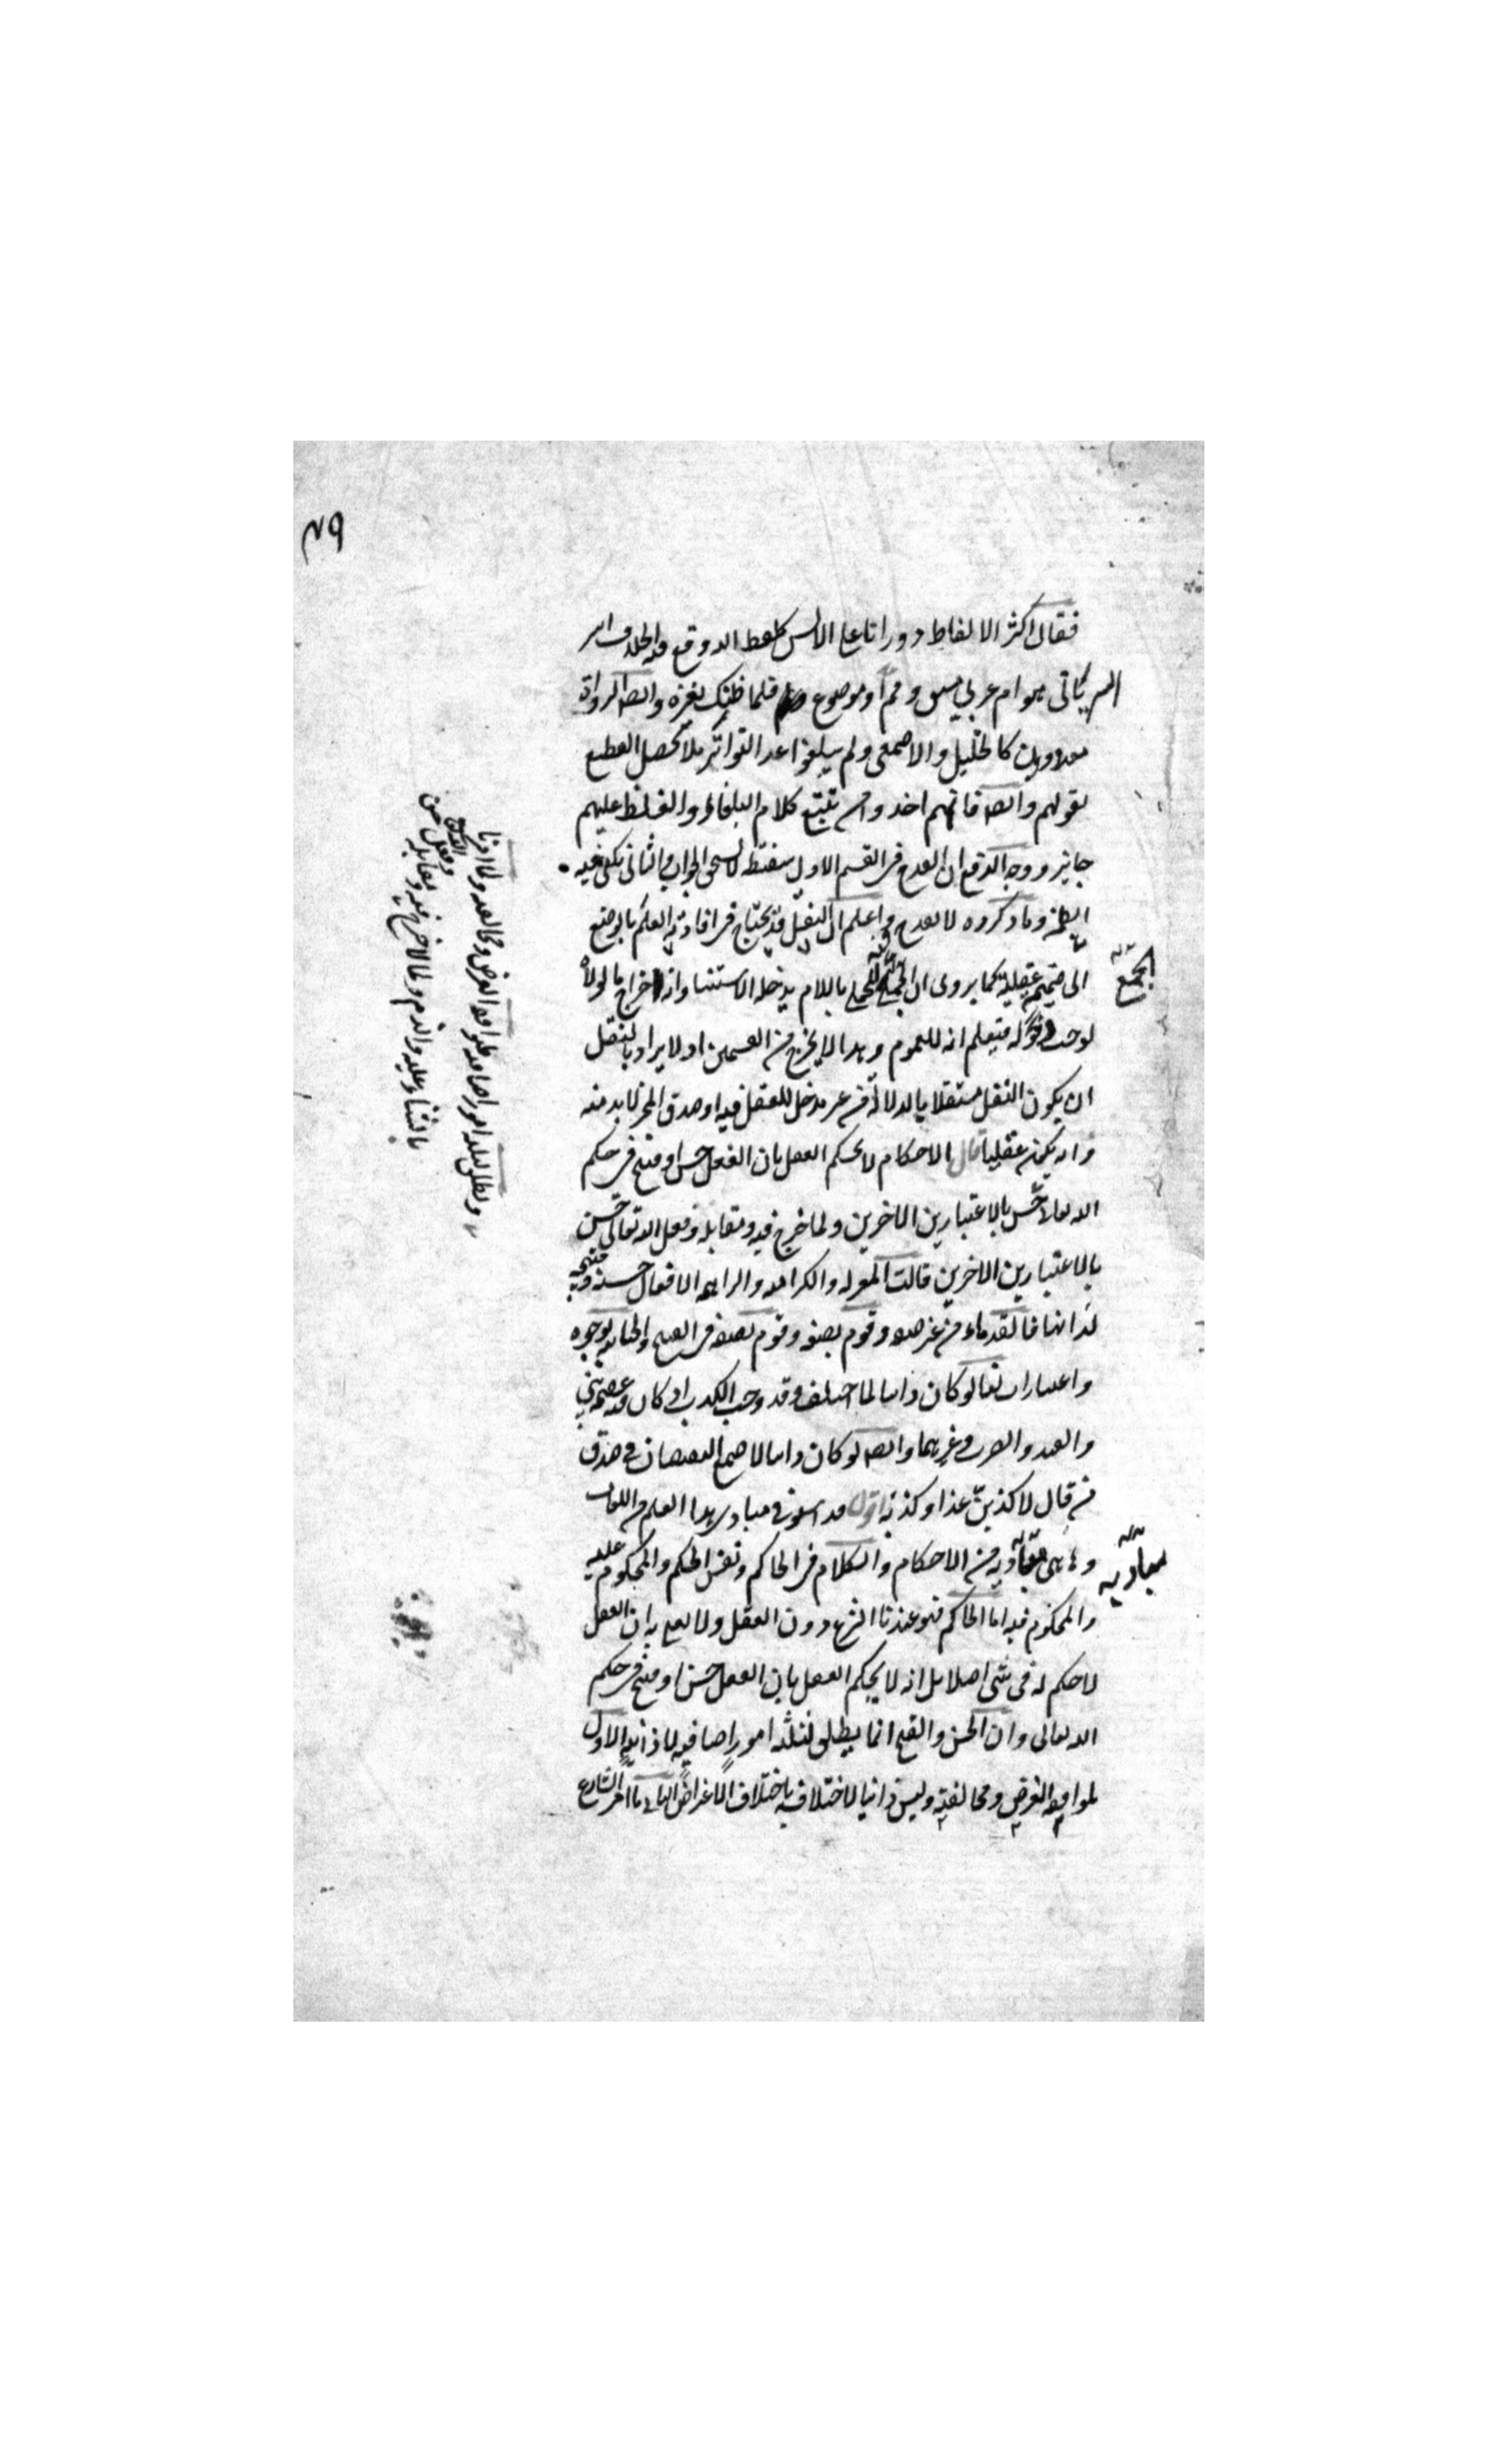 ٧٩
فقالى اكثر الالفاظ دورانا على الالسن كلفظ الله وقع فيه الخلاف اسر
السريانى هو ام عربى مشتق ومم او موضوع فلما ظنك بغيره وايضا الرواة
معدودون كالخليل والاصمعى ولم يبلغوا عدد التواتر فلا يحصل القطع
بقولهم وايضا فانهم اخذوا من تتبع كلام البلغاء والغلط عليهم
جايز ووجه الدفع ان القدح فى القسم الاول سفسطة لا يستحق الجواب والثانى يكفى فيه
الظن وما ذكروه لا يقدح واعلم ان النقل قد يحتاج فى افادته العلم بالوضع
الى ضميمة عقلية كما يروى ان الجمع المحلى باللام يدخله الاستثنا وانه اخراج ما لولاه
الجمع
لوجب دخوله فيعلم انه للعموم وهذا لا يخرج من القسمين اذ لا يراد بالنقل
ان يكون النقل مستقلا بالدلالة من غير مدخل للعقل فيه اذ صدق المخبر لا بد منه
وانه يكون عقليا قال الاحكام لا يحكم العقل بان الفعل حسن او قبيح فى حكم
الله تعالى بالاعتبارين الاخرين ولما خرج فيه ومقابله وفعل الله تعالى حسن
بالاعتبارين الاخرين قالت المعتزلة والكرامية والبراهمة الافعال حسنة وقبيحة
لذاتها فالقدماء من غير صفة وقوم بصفة وقوم بصفة فى القبيح والجبائية بوجوه
واعتبارات لنا لو كان ذاتيا لما اختلف وقد وجب الكذب اذ كان فيه عصمة نبى
والقتل والضرب وغيرهما وايضا لو كان ذاتيا لاجتمع النقيضان فى صدق
من قال لاكذبن غدا وكذبه اقول فى مبادى هذا العلم من اللغات
وهاهى مباديه من الاحكام والكلام فى الحاكم ونفس الحكم والمحكوم عليه
مباديه
والمحكوم فيه اما الحاكم فهو عندنا الشرع دون العقل ولا نعنى به ان العقل
لا حكم له فى شى اصلا بل انه لا يحكم العقل بان الفعل حسن او قبيح فى حكم
الله تعالى وان الحسن والقبح انما يطلق لثلثة امور اضافية لا ذاتية الاول
لموافقة الغرض ومخالفته وليس ذاتيا لاختلافه باختلاف الاغراض الثانى ما امر الشارع
ويطلق لثلثة امور اضافية لموافقة الغرض ومخالفته ولما امرنا
بالثناء عليه والذم ولما لا حرج فيه ومقابله وفعل